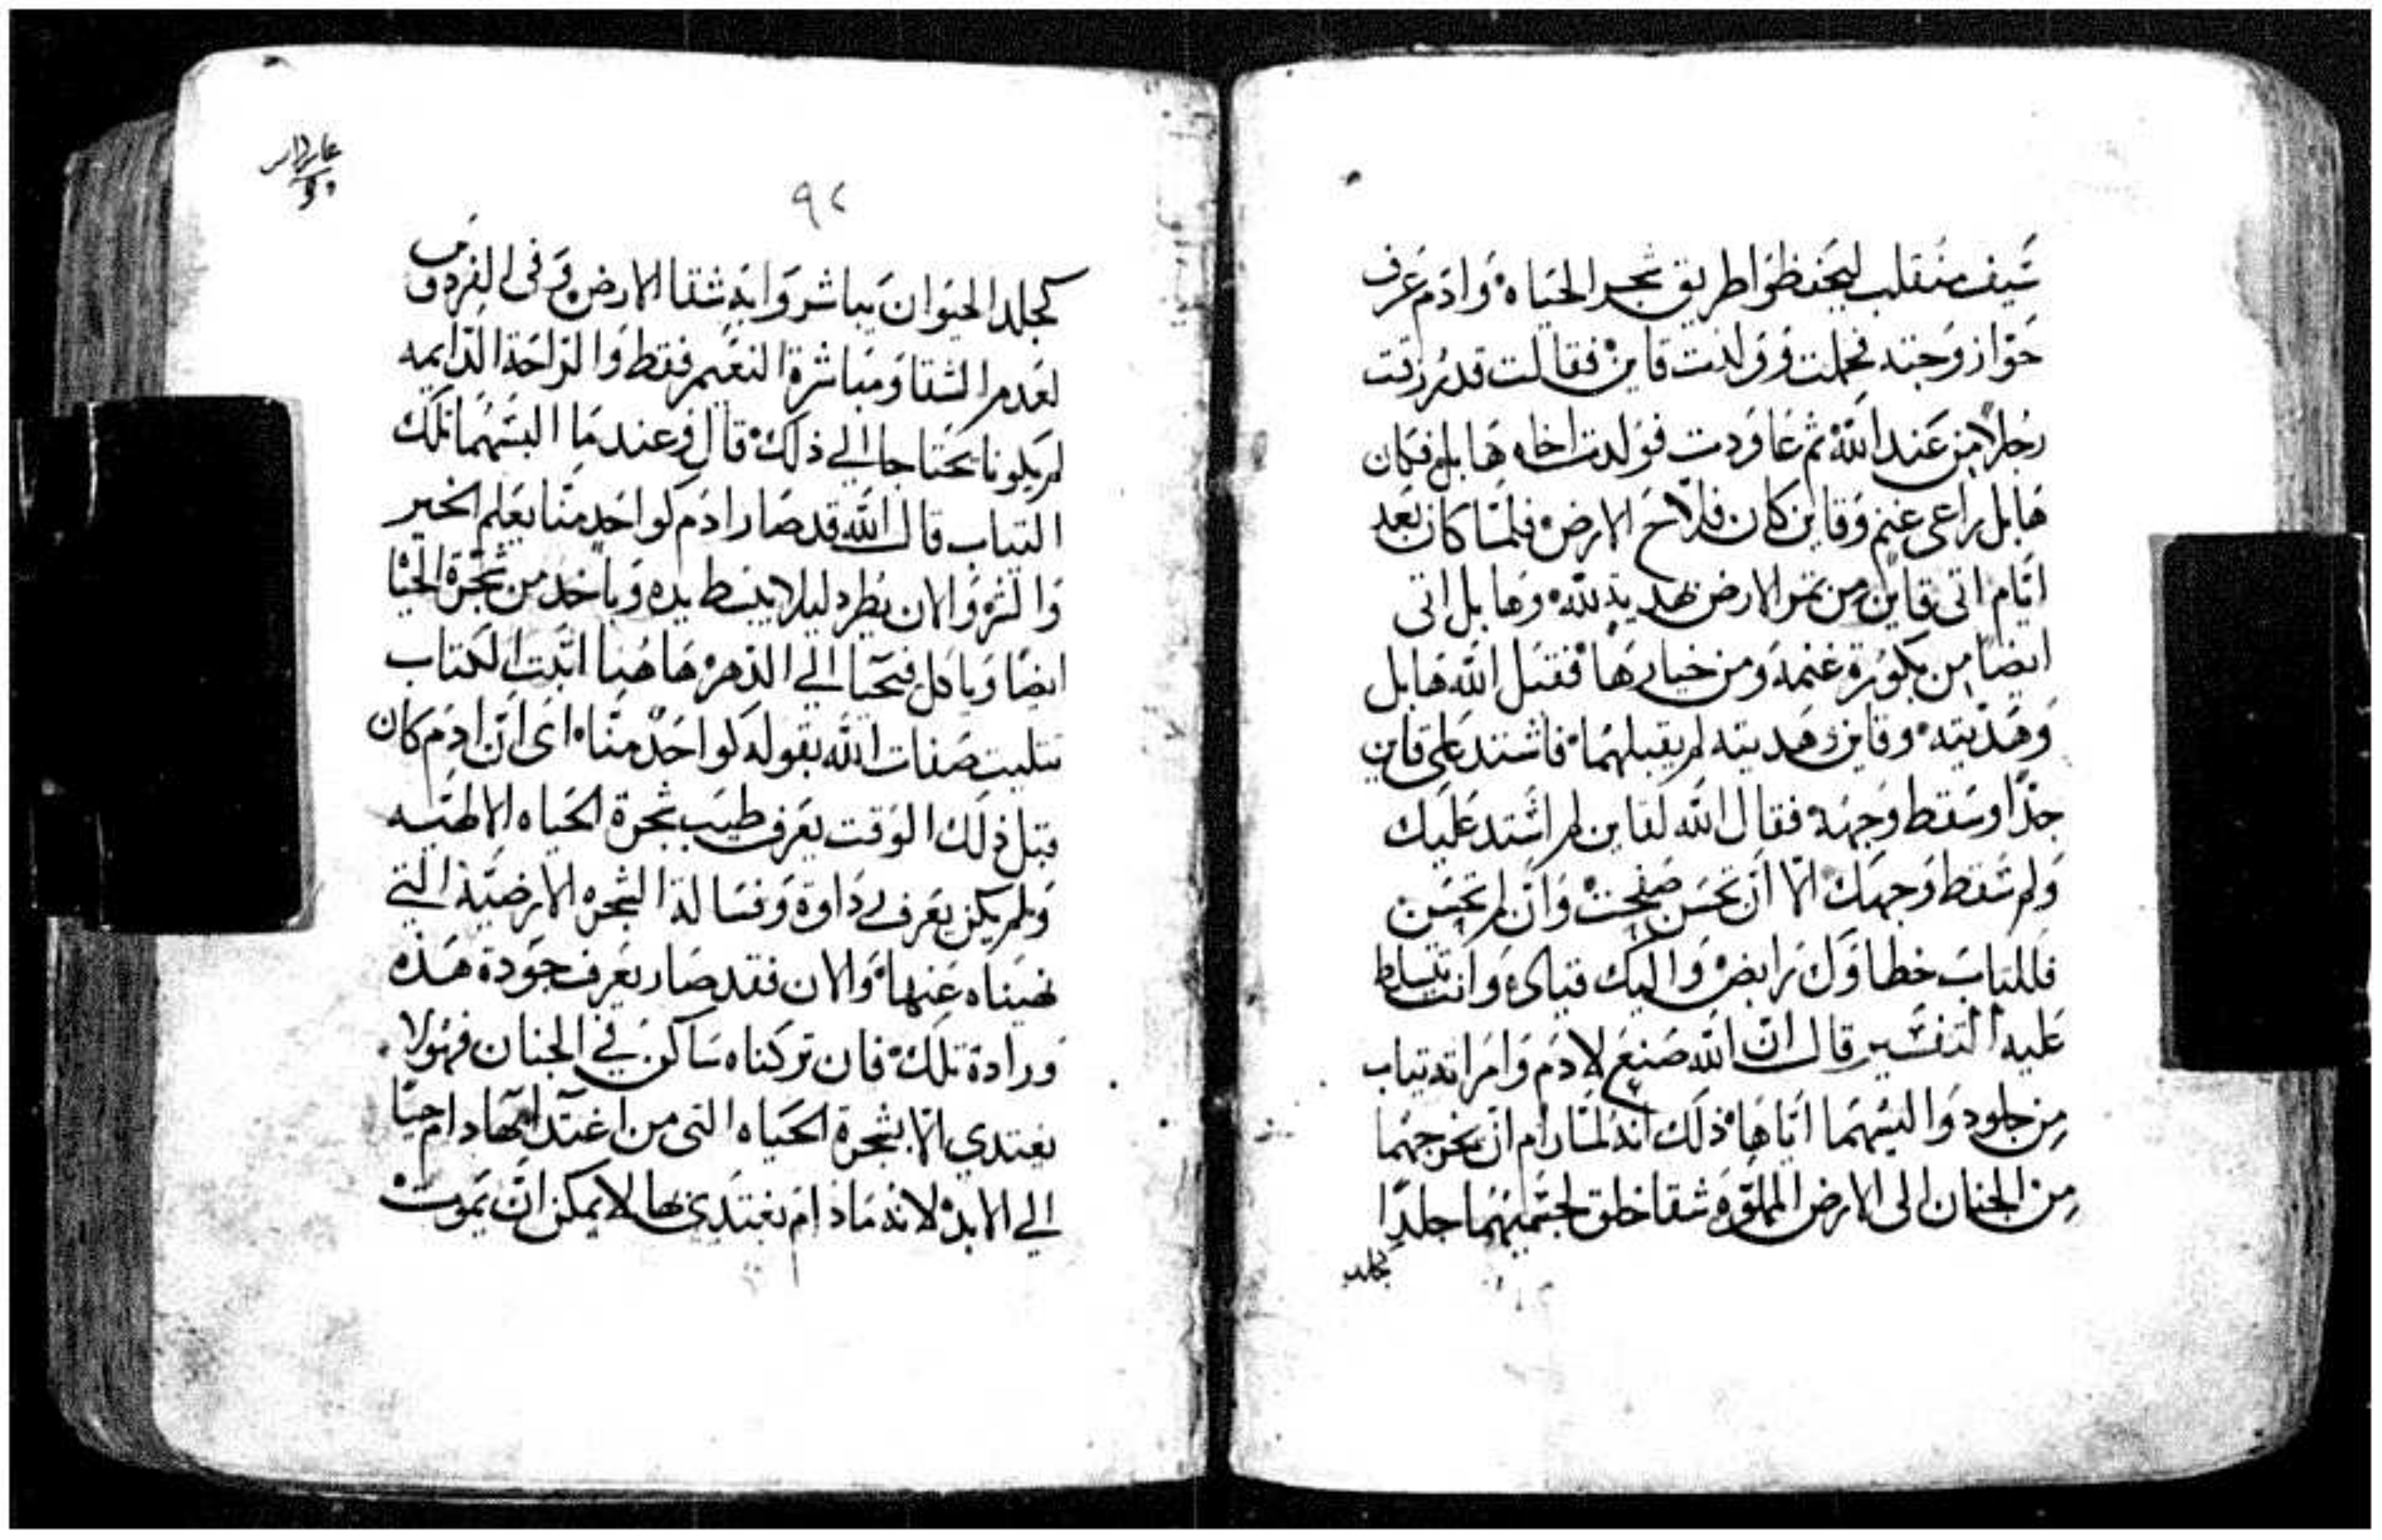 سَيف منقلب ليحَفظوَا طريق شجر الحَياه وَادَم عَرف
حَوّا زوجته فحملت وَولدت قاين فقالت قد رزقت
رجلًا مِن عَند الله ثم عَاودت فوَلدت اخاه هَابل فكان
هَابل رَاعى غنم وَقاين كان فلّاح الارض فلمّا كان بَعد
ايّام اتى قاين من ثمر الارض هديّة لله وهابل اتى
ايضًا من بكورَة غنمه ومن خيارهَا فقبَل الله هَابل
وَهَديته وقاين وَهديته لم يقبلهمَا فاشتد على قاين
جدًا وسَقط وَجهه فقال الله لقاين لم اشتد عَليك
وَلم سَقط وَجهك الّا ان تحَسَن صفحت وَان لم تحَسَن
فللباب خطاوَك رَابض وَاليك قياده وَانت تتسلط
عَليه التفسير قال ان الله صَنع لادَم وَامَراته تياب
مِن جلود وَالبسَهمَا ايّاهَا ذلك انه لمّا رَام ان يخرجهمَا
مِن الجنان الى الارض المملوّه شقا خلق لجسَميهمَا جلدًا
كجلد
٩٢
كجلد الحيَوان يباشر وَابه شقا الارض وَفى الفردوس
لعَدم الشقا وَمبَاشرة النعَيم فقط وَالرّاحَة الدّايمه
لم يكونا يحَتاجا الى ذلك قال وعند مَا البسَهمَا تلك
التياب قال الله قد صَار ادَم كوَاحَد منّا يعَلم الخير
وَالشر وَالان يطرد ليلا يبسَط يده وَياخد من شجرة الحَيَا
ايضًا وَياكل فيَحيَا الى الدَهر هَاهُنا اتبَت الكتاب
تتليت صَفات الله بقوله كواحَد منّا اى ان ادَم كان
قبل ذلك الوَقت يعَرف طيَب شجرة الحَياه الالهيّه
وَلم يكن يعَرف رداوة وَفسَالة الشجره الارضيّة التي
نهيَناه عَنها وَالان فقد صَار يعَرف جَودة هَذه
ورادة تلك فان تركناه سَاكن في الجنان فهوَ لا
يغتدي الّا بشجرة الحَياه التى من اغتدا بهَا دام حيًا
الي الابد لانه مَا دَام يغتدي بها لا يمكن ان يَموت